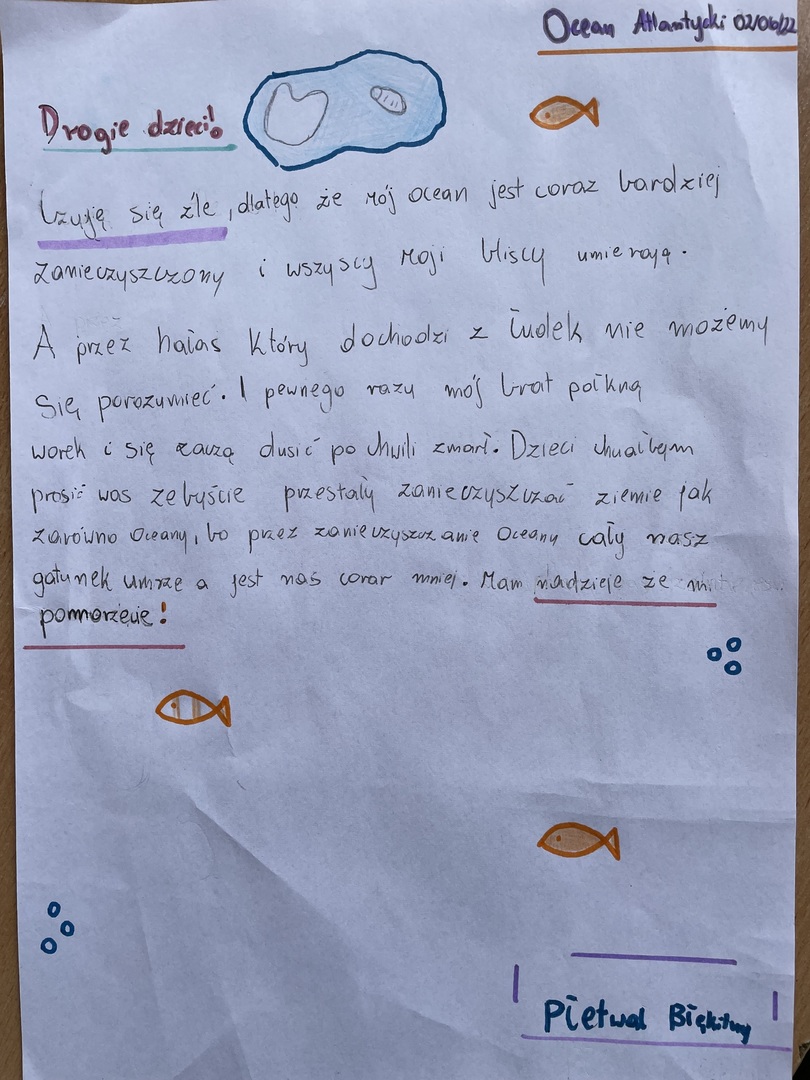 Ocean Atlantycki 02/06/22
Drogie dzieci!
Czuję się źle, dlatego że mój ocean jest coraz bardziej
zanieczyszczony i wszyscy moji bliscy umierają.
A przez hałas który dochodzi z łudek nie możemy
się porozumieć. I pewnego razu mój brat połkną
worek i się zaczą dusić po chwili zmarł. Dzieci chciałbym
prosić was zebyście przestały zanieczyszczać ziemie jak
zarówno Oceany, bo przez zanieczyszczanie Oceany cały nasz
gatunek umrze a jest nas coraz mniej. Mam nadzieje ze mi
pomorzecie!
Płetwal Błękitny